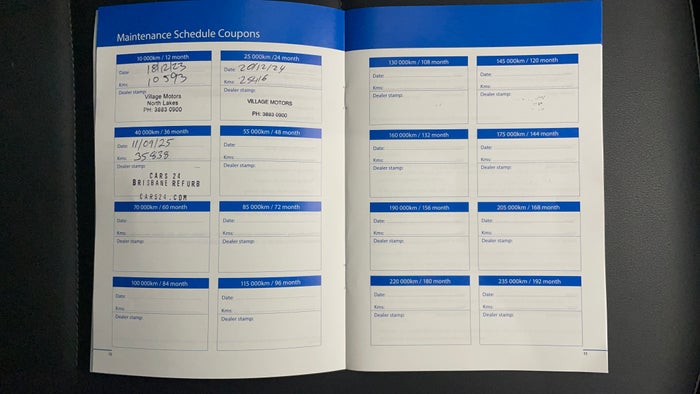 Maintenance Schedule Coupons
10 000km / 12 month
Date: 18/12/23
Kms: 10 593
Dealer stamp:
Village Motors
North Lakes
PH: 3883 0900
25 000km /24 month
Date: 20/12/24
Kms: 25416
Dealer stamp:
VILLAGE MOTORS
PH: 3883 0900
40 000km / 36 month
Date: 11/09/25
Kms: 35838
Dealer stamp:
CARS 24
BRISBANE REFURB
CARS24.COM
55 000km / 48 month
Date:
Kms:
Dealer stamp:
70 000km / 60 month
Date:
Kms:
Dealer stamp:
85 000km / 72 month
Date:
Kms:
Dealer stamp:
100 000km / 84 month
Date:
Kms:
Dealer stamp:
115 000km / 96 month
Date:
Kms:
Dealer stamp:
130 000km / 108 month
Date:
Kms:
Dealer stamp:
145 000km / 120 month
Date:
Kms:
Dealer stamp:
160 000km / 132 month
Date:
Kms:
Dealer stamp:
175 000km / 144 month
Date:
Kms:
Dealer stamp:
190 000km / 156 month
Date:
Kms:
Dealer stamp:
205 000km / 168 month
Date:
Kms:
Dealer stamp:
220 000km / 180 month
Date:
Kms:
Dealer stamp:
235 000km / 192 month
Date:
Kms:
Dealer stamp: